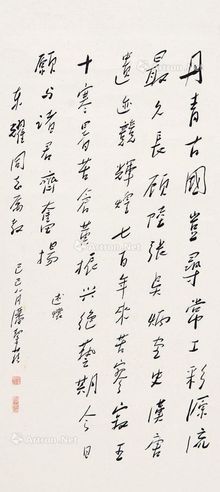 丹青古國豈尋常工彩源流
最久長顧陸張吳炳畫史漢唐
遺迹競輝煌七百年來苦寥寂五
十寒暑苦會營振興絕藝期今日
願與諸君齊奮揚
述懷
東耀同志屬
己巳八月潘絜茲
Artron.Net
Artron.Net